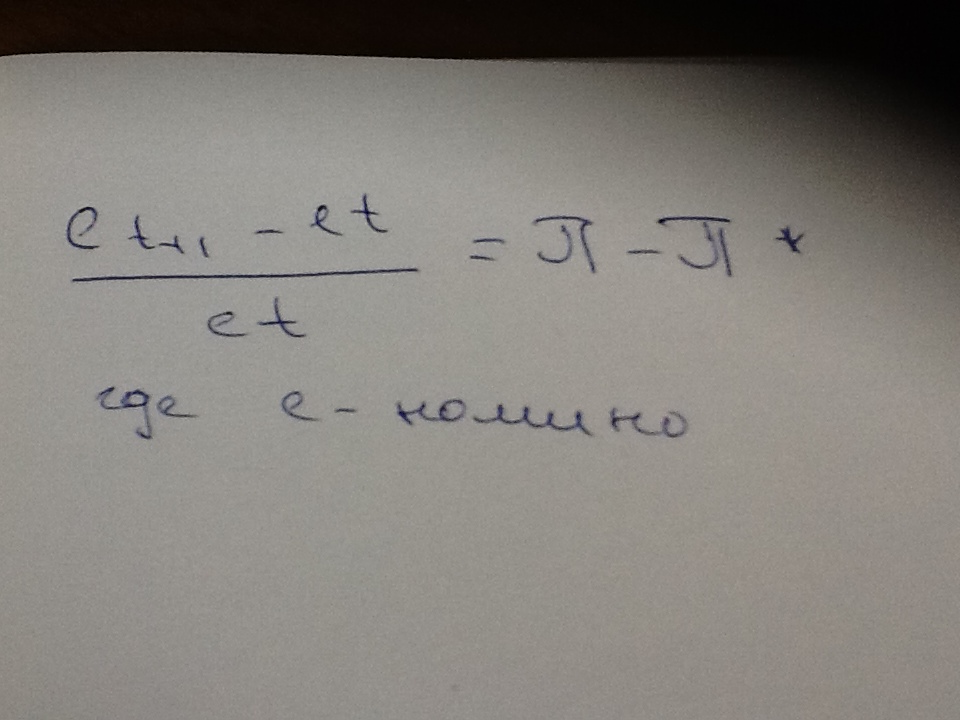 e t+1 - et
et
= π - π *
где е - номино